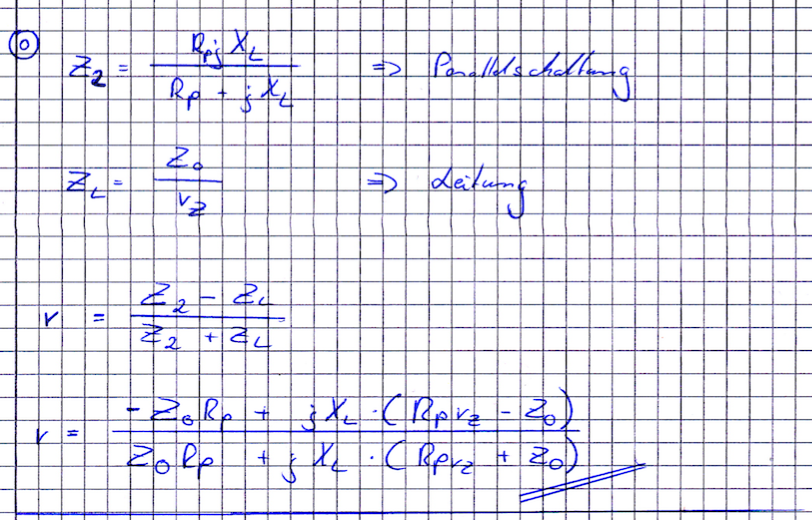 ⓪ Z₂ = (Rₚj X_L) / (Rₚ + j X_L) => Parallelschaltung
Z_L = Z₀ / v_Z => Leitung
r = (Z₂ - Z_L) / (Z₂ + Z_L)
r = (-Z₀ Rₚ + j X_L · (Rₚ v_Z - Z₀)) / (Z₀ Rₚ + j X_L · (Rₚ v_Z + Z₀))